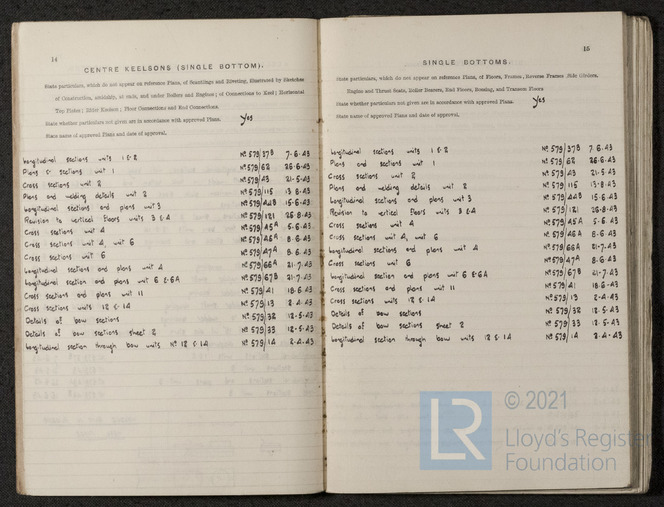 14
CENTRE KEELSONS (SINGLE BOTTOM).
State particulars, which do not appear on reference Plans, of Scantlings and Riveting, illustrated by Sketches
of Construction, amidship, at ends, and under Boilers and Engines; of Connections to Keel; Horizontal
Top Plates; Rider Keelson; Floor Connections and End Connections.
State whether particulars not given are in accordance with approved Plans. Yes
State name of approval Plans and date of approval.
Longitudinal sections units 1 & 2 No 579/37B 7.6.43
Plans & sections unit 1 No 579/62 26.6.43
Cross sections unit 2 No 579/43 21.5.43
Plans and welding details unit 2 No 579/115 13.8.43
Longitudinal sections and plans unit 3 No 579/44B 15.6.43
Revision to vertical floors units 3 & 4 No 579/121 26.8.43
Cross sections unit 4 No 579/45A 5.6.43
Cross sections unit 4, unit 6 No 579/46A 8.6.43
Cross sections unit 6 No 579/47A 8.6.43
Longitudinal sections and plans unit 4 No 579/66A 21.7.43
Longitudinal section and plans unit 6 & 6A No 579/67B 21.7.43
Cross sections and plans unit 11 No 579/41 18.6.43
Cross sections units 12 & 14 No 579/13 2.4.43
Details of bow sections No 579/32 12.5.43
Details of bow sections sheet 2 No 579/33 12.5.43
Longitudinal section through bow units No 12 & 14 No 579/14 2.4.43
15
SINGLE BOTTOMS.
State particulars, which do not appear on reference Plans, of Floors, Frames, Reverse Frames, Side Girders,
Engine and Thrust Seats, Boiler Bearers, End Floors, Bossing, and Transom Floors
State whether particulars not given are in accordance with approved Plans. Yes
State name of approval Plans and date of approval.
Longitudinal sections units 1 & 2 No 579/37B 7.6.43
Plans and sections unit 1 No 579/62 26.6.43
Cross sections unit 2 No 579/43 21.5.43
Plans and welding details unit 2 No 579/115 13.8.43
Longitudinal sections and plans unit 3 No 579/44B 15.6.43
Revision to vertical floors units 3 & 4 No 579/121 26.8.43
Cross sections unit 4 No 579/45A 5.6.43
Cross sections unit 4, unit 6 No 579/46A 8.6.43
Longitudinal sections and plans unit 4 No 579/66A 21.7.43
Cross sections unit 6 No 579/47A 8.6.43
Longitudinal section and plans unit 6 & 6A No 579/67B 21.7.43
Cross sections and plans unit 11 No 579/41 18.6.43
Cross sections units 12 & 14 No 579/13 2.4.43
Details of bow sections No 579/32 12.5.43
Details of bow sections sheet 2 No 579/33 12.5.43
Longitudinal section through bow units 12 & 14 No 579/14 2.4.43
LR
© 2021
Lloyd's Register
Foundation